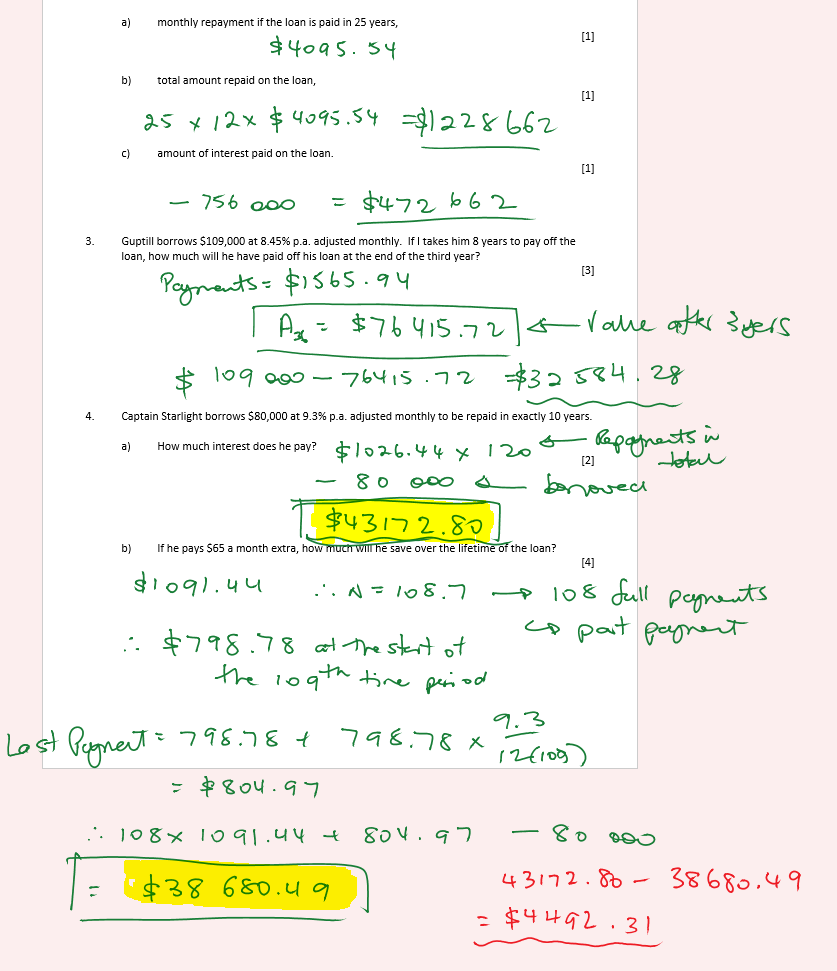 a) monthly repayment if the loan is paid in 25 years,
[1]
$4095.54
b) total amount repaid on the loan,
[1]
25 x 12 x $4095.54 = $1228662
c) amount of interest paid on the loan.
[1]
- 756 000 = $472 662
3. Guptill borrows $109,000 at 8.45% p.a. adjusted monthly. If I takes him 8 years to pay off the
loan, how much will he have paid off his loan at the end of the third year?
[3]
Payments = $1565.94
Ax = $76415.72 ← Value after 3 yers
$ 109 000 - 76415.72 = $32 584.28
4. Captain Starlight borrows $80,000 at 9.3% p.a. adjusted monthly to be repaid in exactly 10 years.
a) How much interest does he pay?
[2]
$1026.44 x 120 ← Repayments in
total
- 80 000 ← borrowed
$43172.80
b) If he pays $65 a month extra, how much will he save over the lifetime of the loan?
[4]
$1091.44 ∴ N = 108.7 → 108 full payments
↪ part payment
∴ $798.78 at the start of
the 109th time period
Last Payment = 798.78 + 798.78 x 9.3/12(100)
= $804.97
∴ 108 x 1091.44 + 804.97 - 80 000
= $38 680.49
43172.80 - 38680.49
= $4492.31